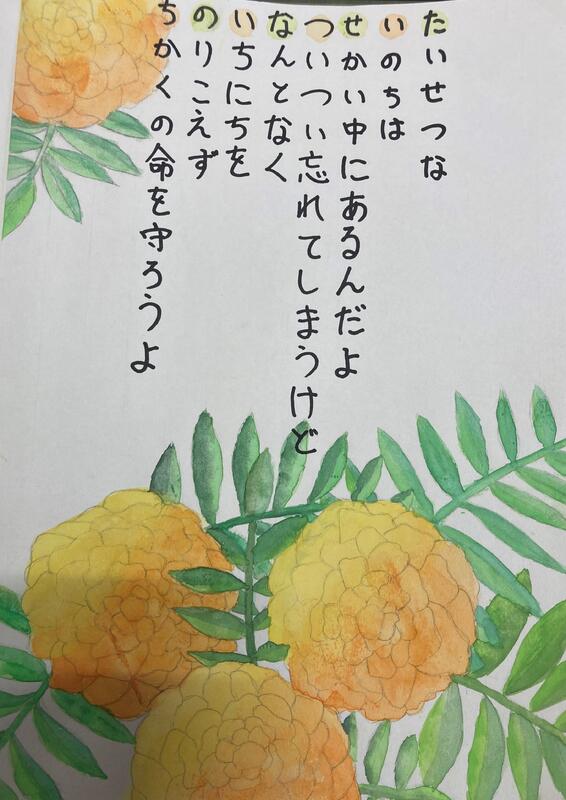 たいせつな
いのちは
せかい中にあるんだよ
ついつい忘れてしまうけど
なんとなく
いちにちを
のりこえず
ちかくの命を守ろうよ